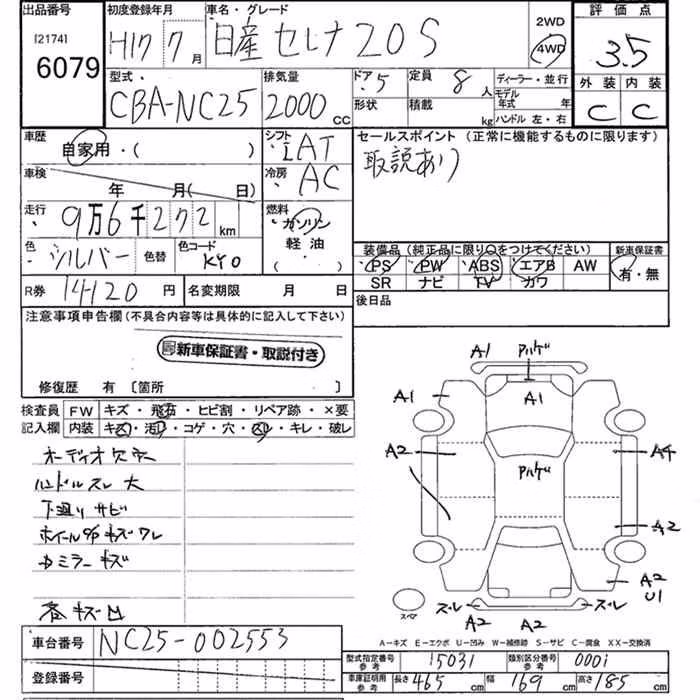 出品番号
[2174]
6079
初度登録年月
H17 7月
車名・グレード
日産 セレナ 20S
2WD
4WD
評価点
3.5
外装 内装
C C
型式
CBA-NC25
排気量
2000 CC
ドア 5
形状
定員 8人
積載 kg
ディーラー・並行
モデル年式 年
ハンドル 左・右
車歴
自家用・( )
シフト
IAT
セールスポイント(正常に機能するものに限ります)
取説あり
車検
年 月( 日)
冷房
AC
走行
9万6千272km
燃料
ガソリン
軽油
( )
色
シルバー
色替
色コード
KY0
装備品(純正品に限り○をつけてください)
PS PW ABS エアB AW
SR ナビ TV カワ
新車保証書
有・無
R券 14120円
名変期限 月 日
後日品
注意事項申告欄(不具合内容等は具体的に記入して下さい)
新車保証書・取説付き
修復歴 有〔箇所 〕
検査員記入欄
FW キズ・飛石・ヒビ割・リペア跡・×要
内装 キズ・汚れ・コゲ・穴・スレ・キレ・破レ
オーディオ欠
ハンドルスレ大
下廻りサビ
ホイール キズ ワレ
ミラーキズ
キズ凹
A1 アハゲ
A1
A1
A2
アハゲ
A4
A2
A2
U1
スペア
スレ
A2 A2
スレ
A−キズ E−エクボ U−凹み W−補修跡 S−サビ C−腐食 XX−交換済
車台番号 NC25-002553
登録番号
型式指定番号 参考 15031
類別区分番号 参考 0001
車庫証明用 参考 長さ 465cm 幅 169cm 高さ 185cm